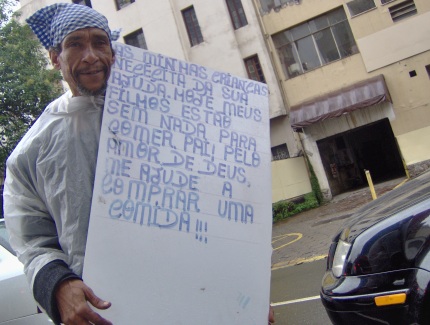 AS MINHAS CRIANÇAS
NECECITA DA SUA
AJUDA. HOJE MEUS
FILHOS ESTÃO
SEM NADA PARA
COMER PAI! PELO
AMOR DE DEUS.
ME AJUDE A
COMPRAR UMA
COMIDA!!!